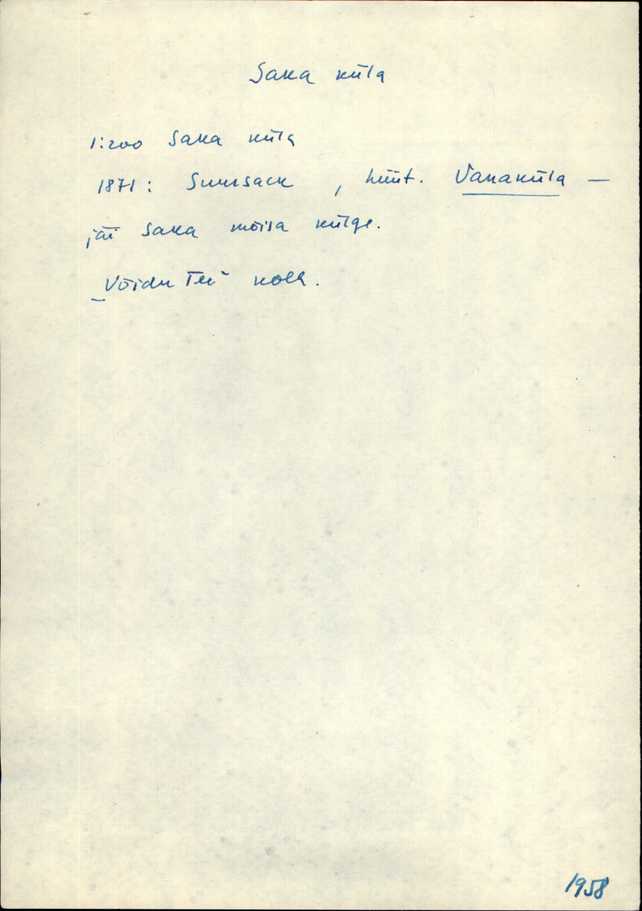 Saka küla
1:200 Saka küla
1871: Suursack, hüüt. Vanaküla —
jäi Saka mõisa külge.
„Võidu Tee" kolh.
1958